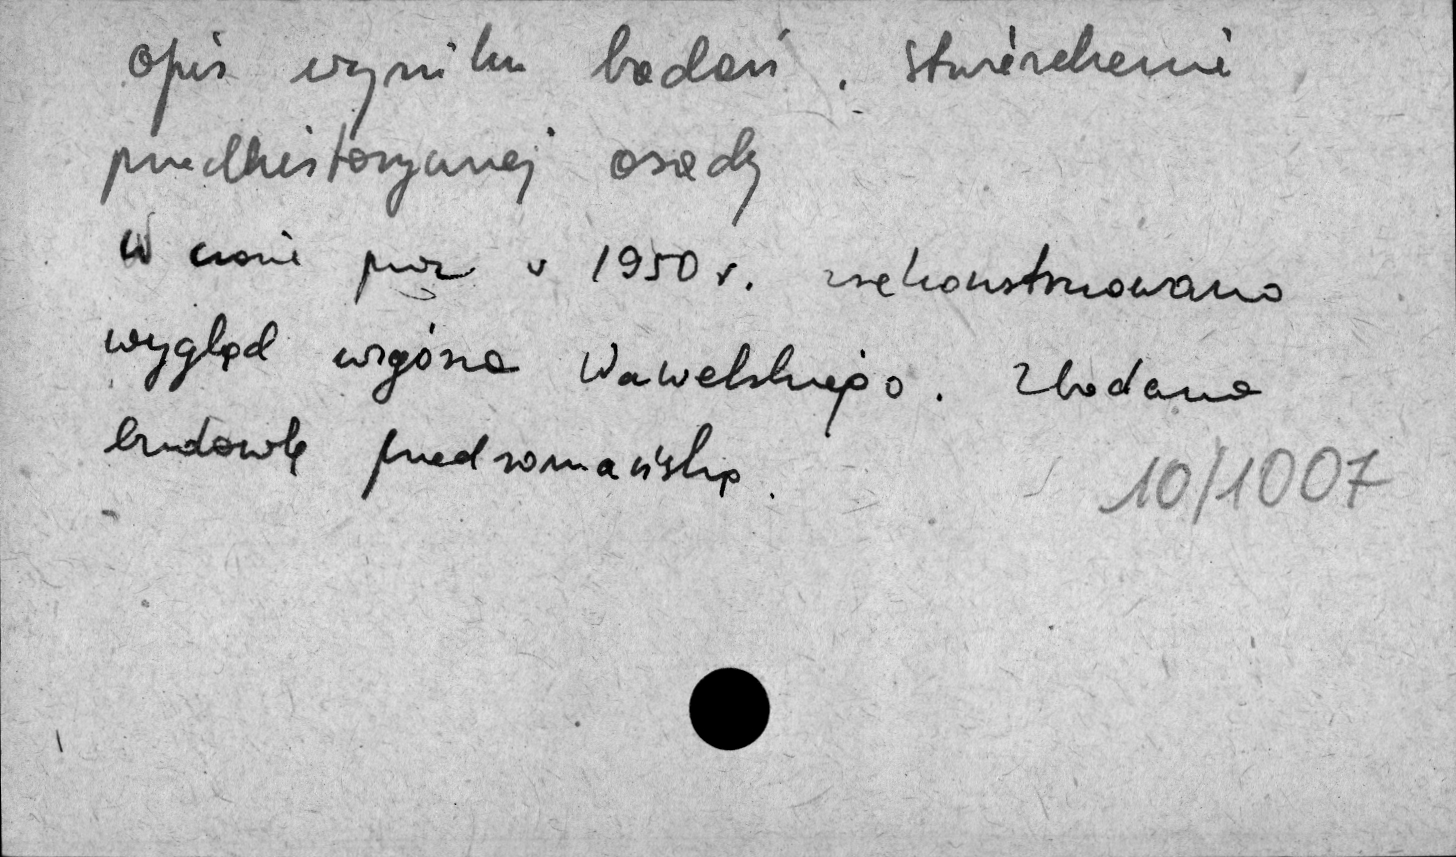 opis wyniku badań. Stwierdzenie
predhistorycznej osady
W czasie prac w 1950 r. zrekonstruowano
wygląd wzgórza Wawelskiego. Zbadano
budowlę przedromańską.
10/1007